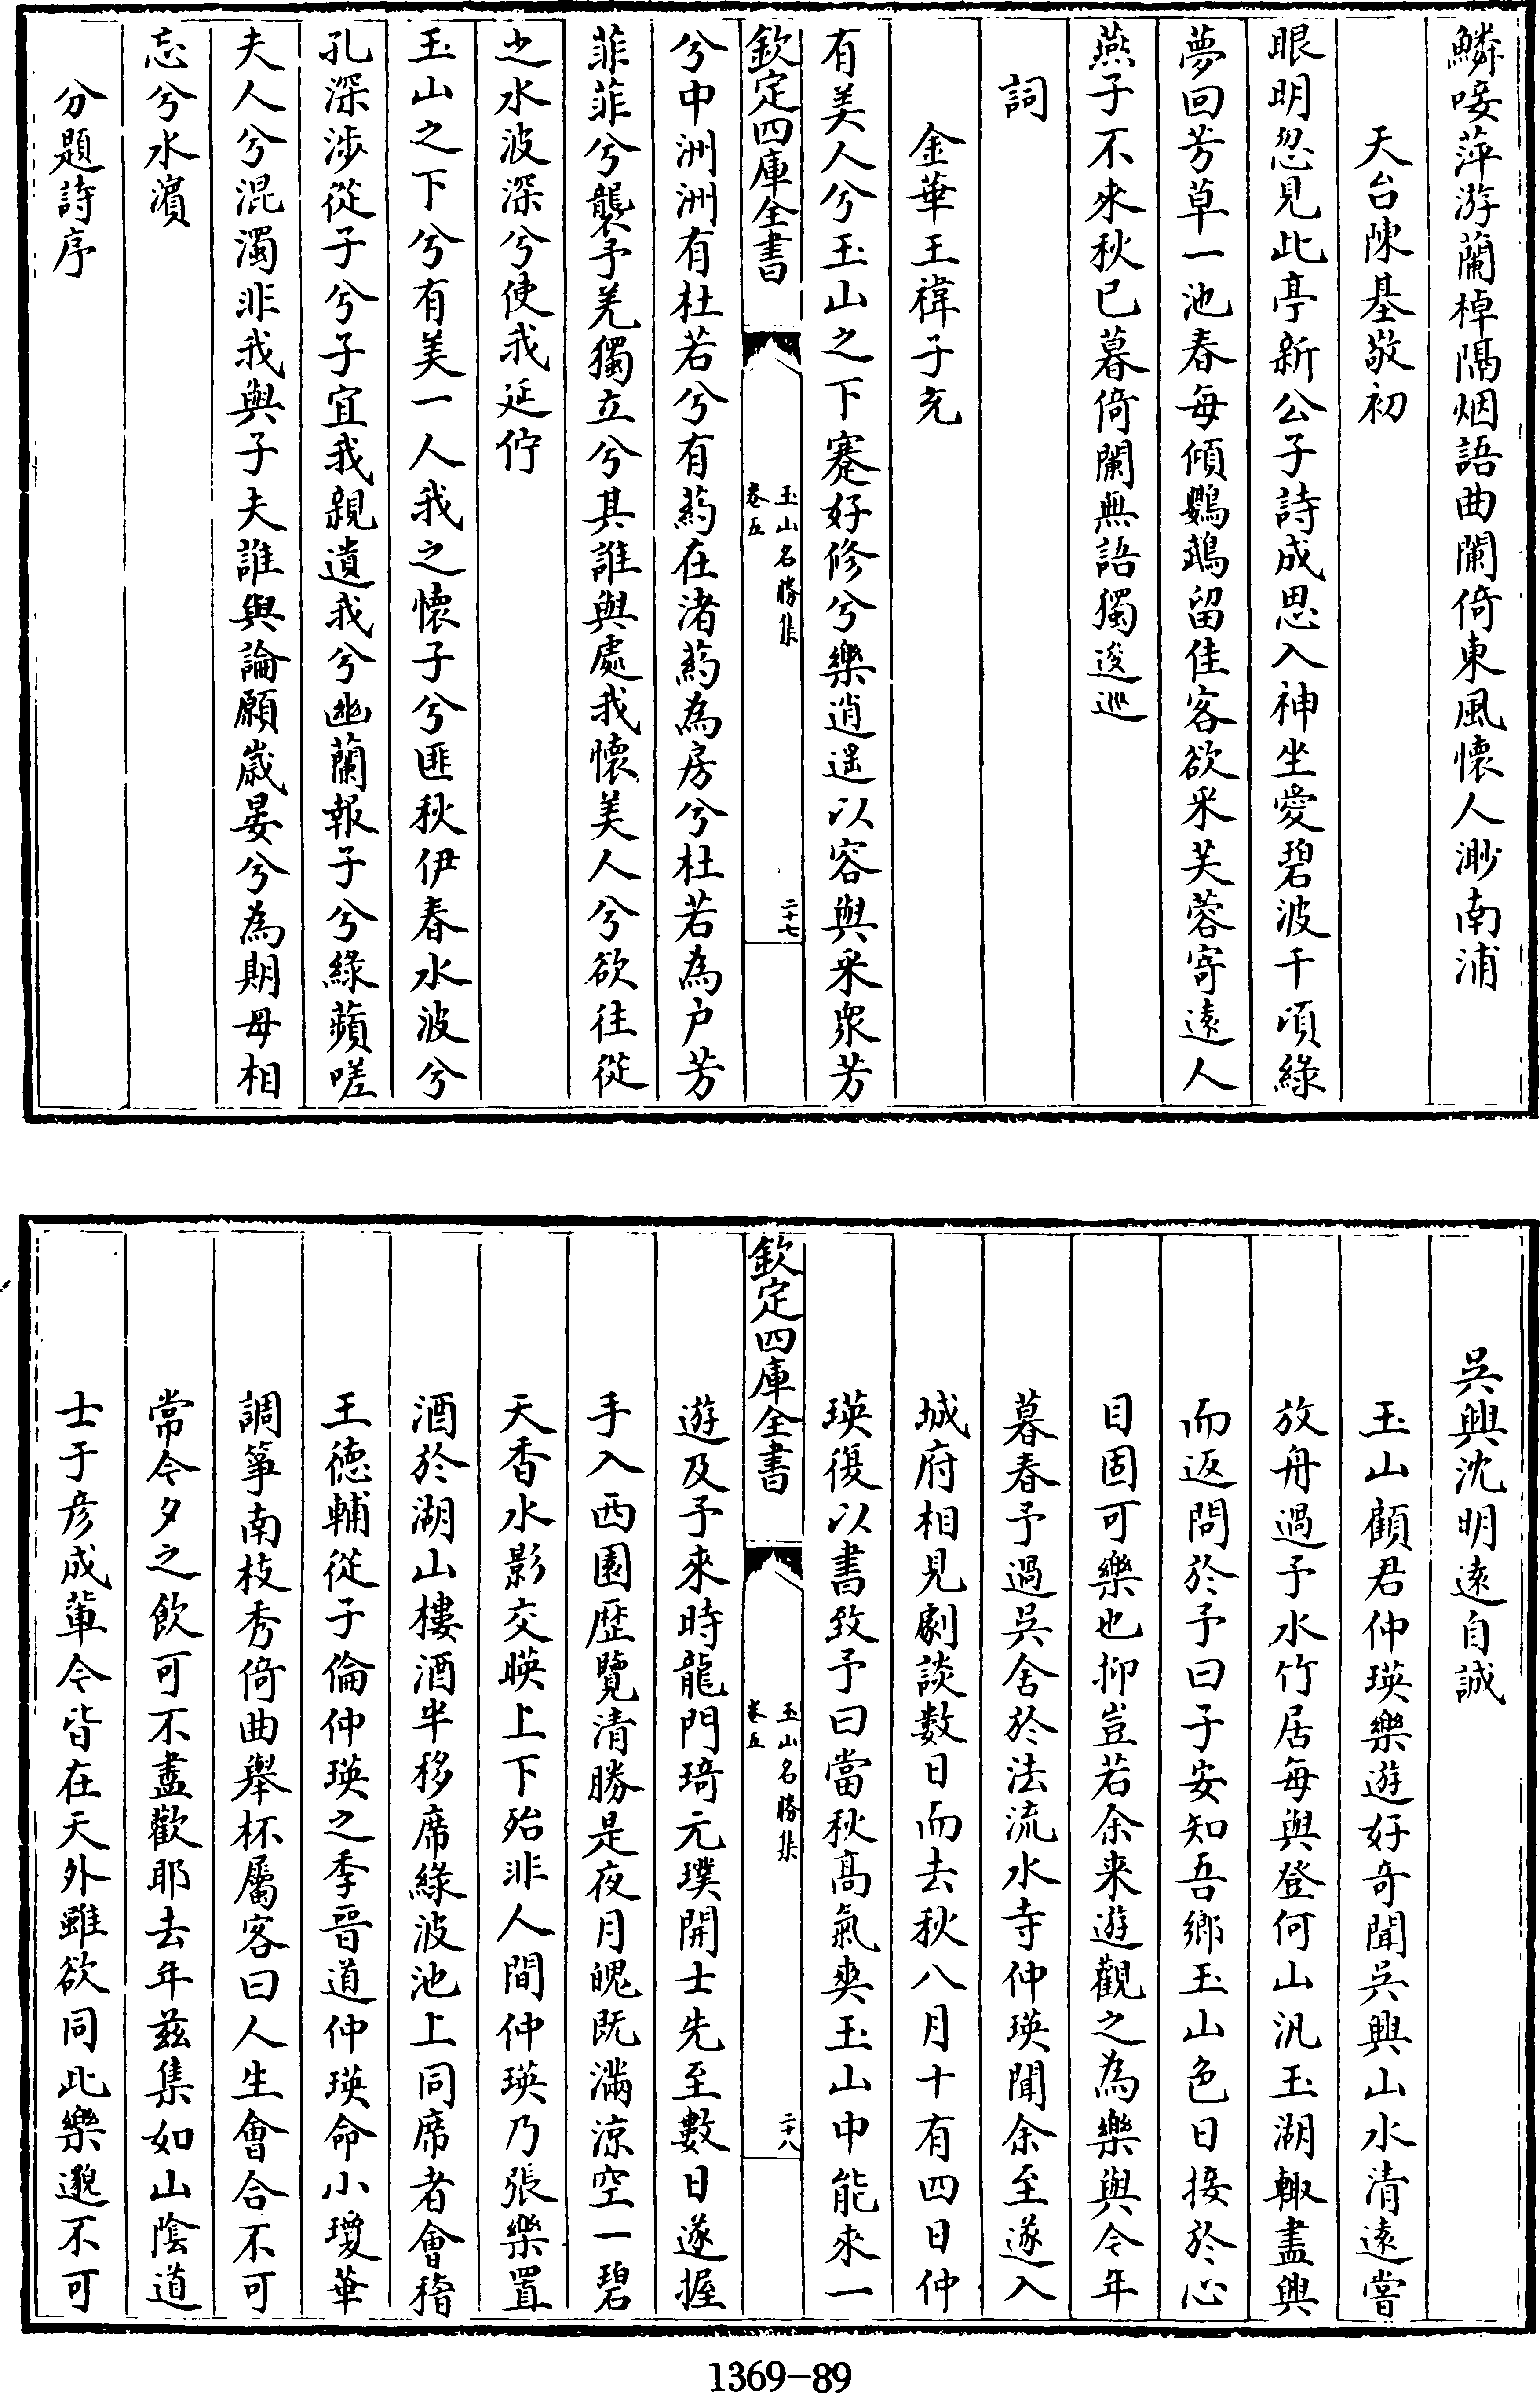 鱗唼萍游蘭棹隔烟語曲闌倚東風懷人渺南浦
天台陳基敬初
眼明忽見此亭新公子詩成思入神坐愛碧波千頃綠
夢回芳草一池春每傾鸚鵡留佳客欲采芙蓉寄遠人
燕子不來秋已暮倚闌無語獨逡巡
詞
金華王禕子充
有美人兮玉山之下蹇好修兮樂逍遥以容與采衆芳
欽定四庫全書
玉山名勝集
卷五
二十七
兮中洲洲有杜若兮有葯在渚葯為房兮杜若為户芳
菲菲兮襲予羌獨立兮其誰與處我懷美人兮欲往從
之水波深兮使我延佇
玉山之下兮有美一人我之懷子兮匪秋伊春水波兮
孔深涉從子兮子宜我親遺我兮幽蘭報子兮綠蘋嗟
夫人兮混濁非我與子夫誰與論願歲晏兮為期毋相
忘兮水濱
分題詩序
吳興沈明遠自誠
玉山顧君仲瑛樂遊好奇聞吳興山水清遠嘗
放舟過予水竹居每與登何山汎玉湖輙盡興
而返問於予曰子安知吾鄉玉山色日接於心
目固可樂也抑豈若余来遊觀之為樂與今年
暮春予過吳舍於法流水寺仲瑛聞余至遂入
城府相見劇談數日而去秋八月十有四日仲
瑛復以書致予曰當秋髙氣爽玉山中能來一
欽定四庫全書
玉山名勝集
卷五
二十八
遊及予來時龍門琦元璞開士先至數日遂握
手入西園歴覽清勝是夜月魄既滿涼空一碧
天香水影交暎上下殆非人間仲瑛乃張樂置
酒於湖山樓酒半移席綠波池上同席者會稽
王德輔從子倫仲瑛之季晋道仲瑛命小瓊華
調箏南枝秀倚曲舉杯屬客曰人生會合不可
常今夕之飲可不盡歡耶去年兹集如山隂道
士于彦成軰今皆在天外雖欲同此樂邈不可
1369-89